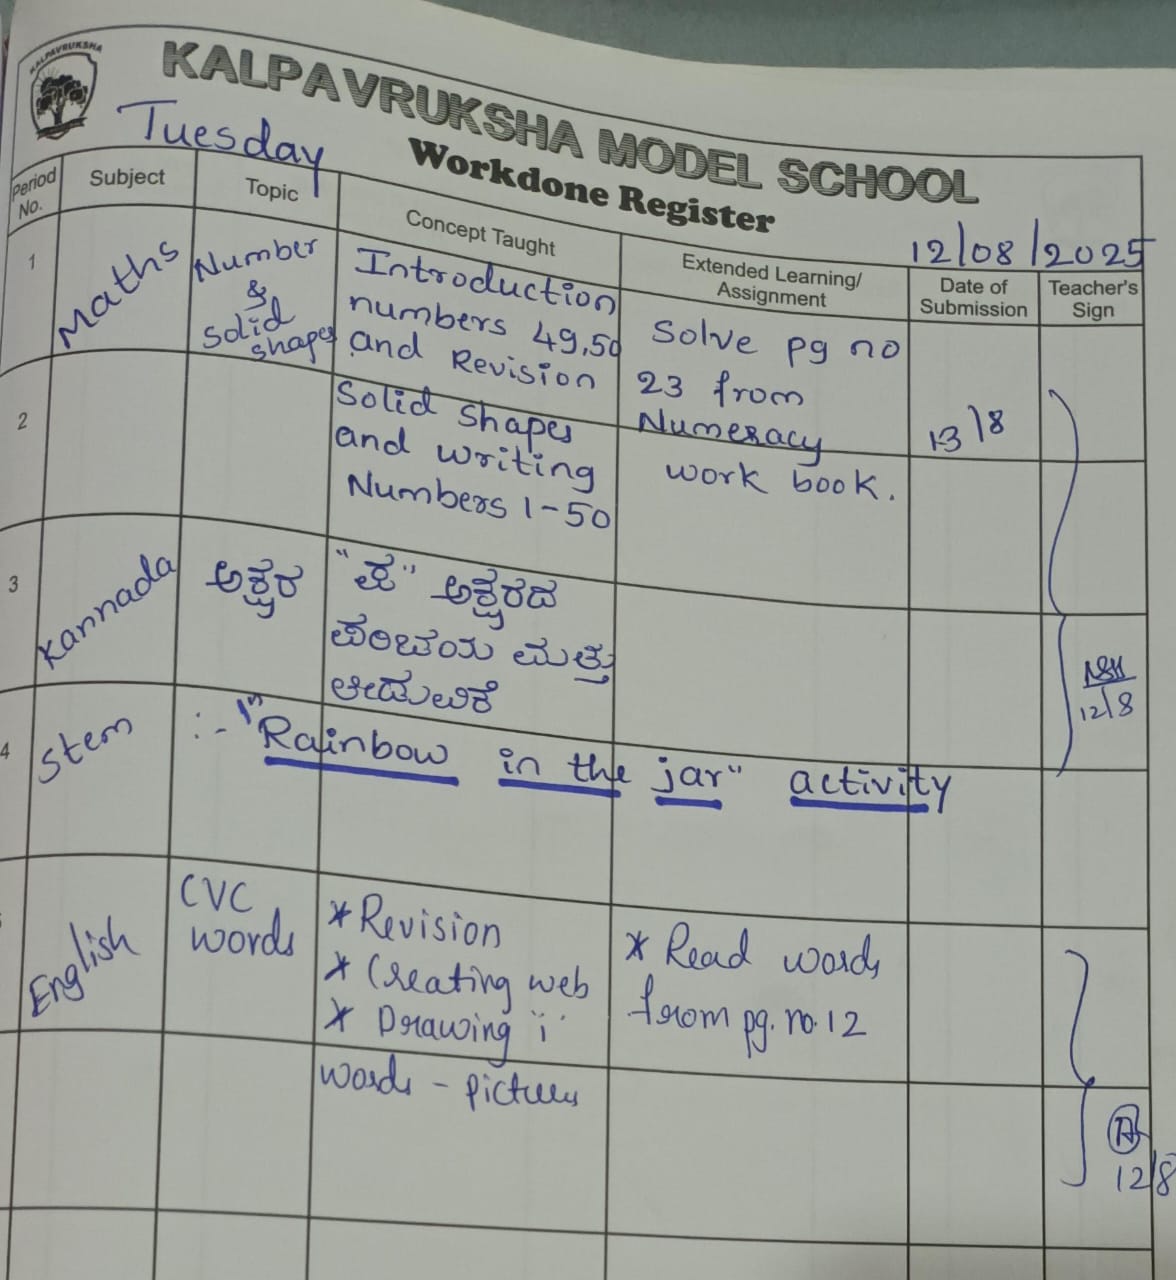 KALPAVRUKSHA
KALPAVRUKSHA MODEL SCHOOL
Tuesday
Workdone Register
12/08/2025
Period No.
Subject
Topic
Concept Taught
Extended Learning/
Assignment
Date of
Submission
Teacher's
Sign
1
Maths
Number
&
Solid
shapes
Introduction
numbers 49,50
and Revision
Solve pg no
23 from
Numeracy
work book.
13/8
2
Solid shapes
and writing
Numbers 1-50
3
Kannada
ಅಕ್ಷರ
ಅಕ್ಷರದ
ಪರಿಚಯ ಮತ್ತು
12/8
4
Stem
:- "Rainbow in the jar" activity
English
CVC
words
* Revision
* Creating web
* Drawing 'i'
words - pictures
* Read words
from pg. no. 12
12/8